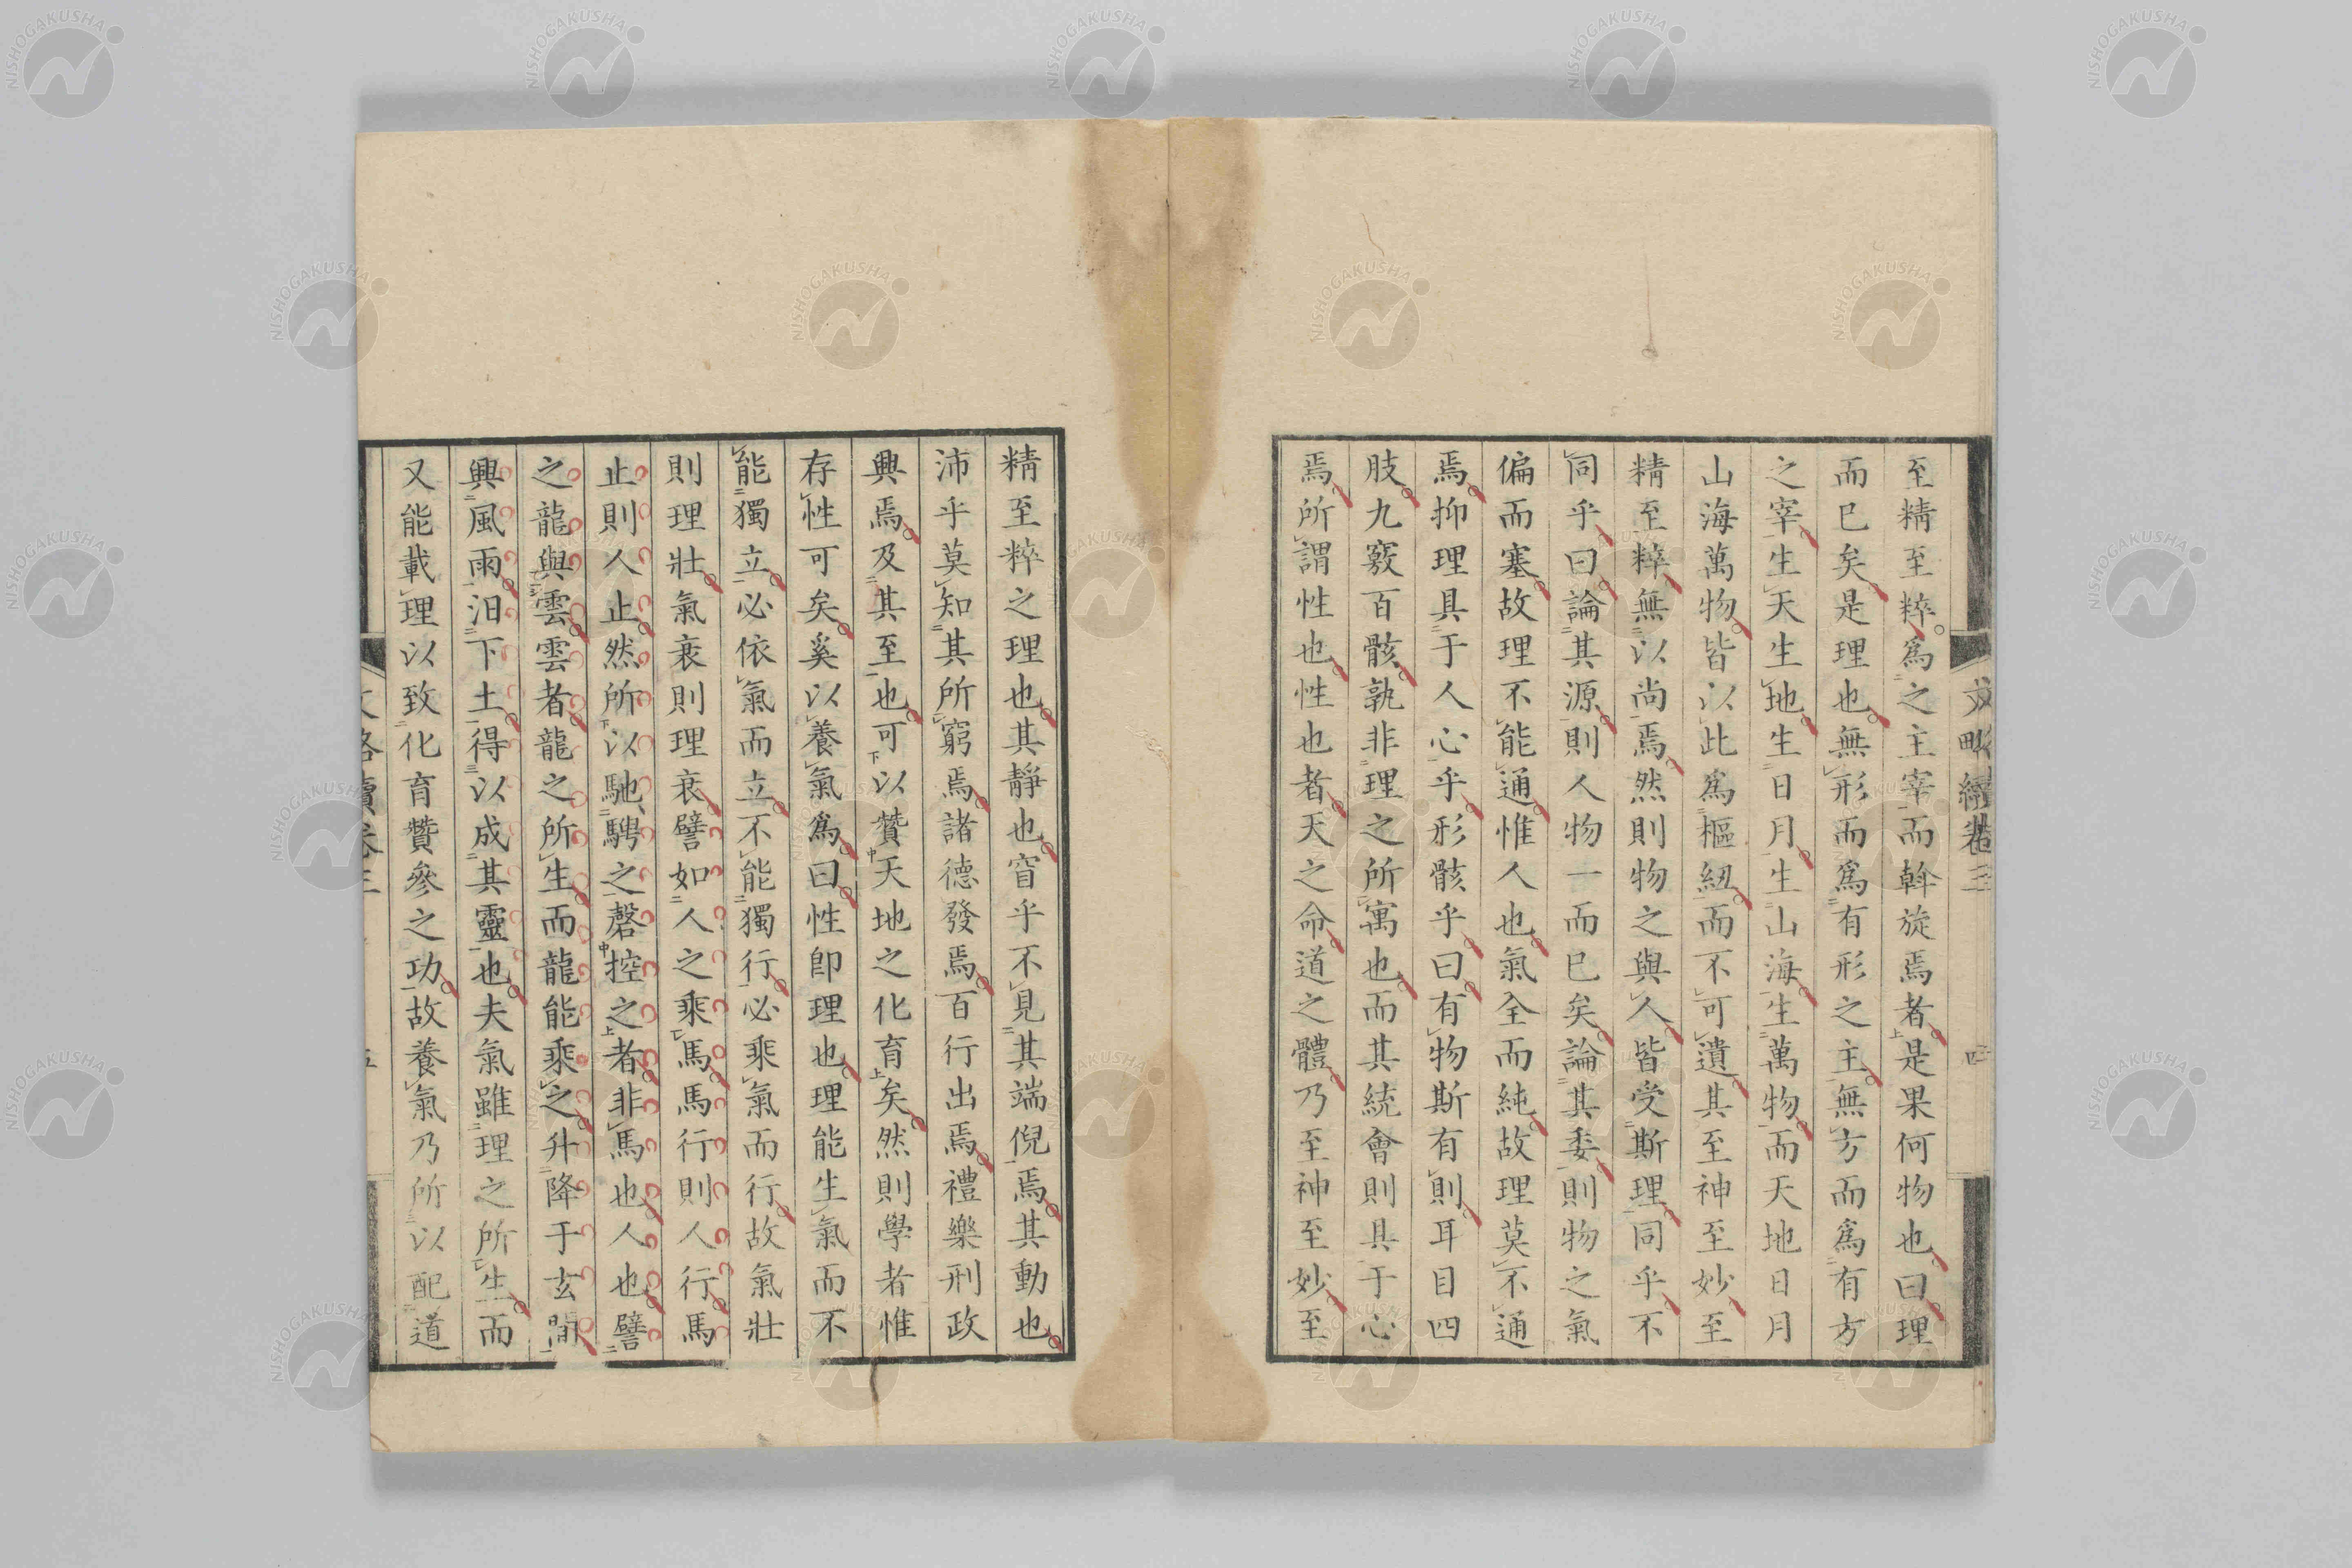 至精至粹爲之主宰而斡旋焉者是果何物也曰理
而已矣是理也無形而爲有形之主無方而爲有方
之宰生天生地生日月生山海生萬物而天地日月
山海萬物皆以此爲樞紐而不可遺其至神至妙至
精至粹無以尚焉然則物之與人皆受斯理同乎不
同乎曰論其源則人物一而已矣論其委則物之氣
偏而塞故理不能通惟人也氣全而純故理莫不通
焉抑理具于人心乎形骸乎曰有物斯有則耳目四
肢九竅百骸孰非理之所寓也而其統會則具于心
焉所謂性也性也者天之命道之體乃至神至妙至
精至粹之理也其靜也窅乎不見其端倪焉其動也
沛乎莫知其所窮焉諸德發焉百行出焉禮樂刑政
興焉及其至也可以贊天地之化育矣然則學者惟
存性可矣奚以養氣爲曰性卽理也理能生氣而不
能獨立必依氣而立不能獨行必乘氣而行故氣壯
則理壯氣衰則理衰譬如人之乘馬馬行則人行馬
止則人止然所以馳騁之磬控之者非馬也人也譬
之龍與雲雲者龍之所生而龍能乘之升降于玄間
興風雨汨下土得以成其靈也夫氣雖理之所生而
又能載理以致化育贊參之功故養氣乃所以配道
文略續卷三
四
NISHOGAKUSHA